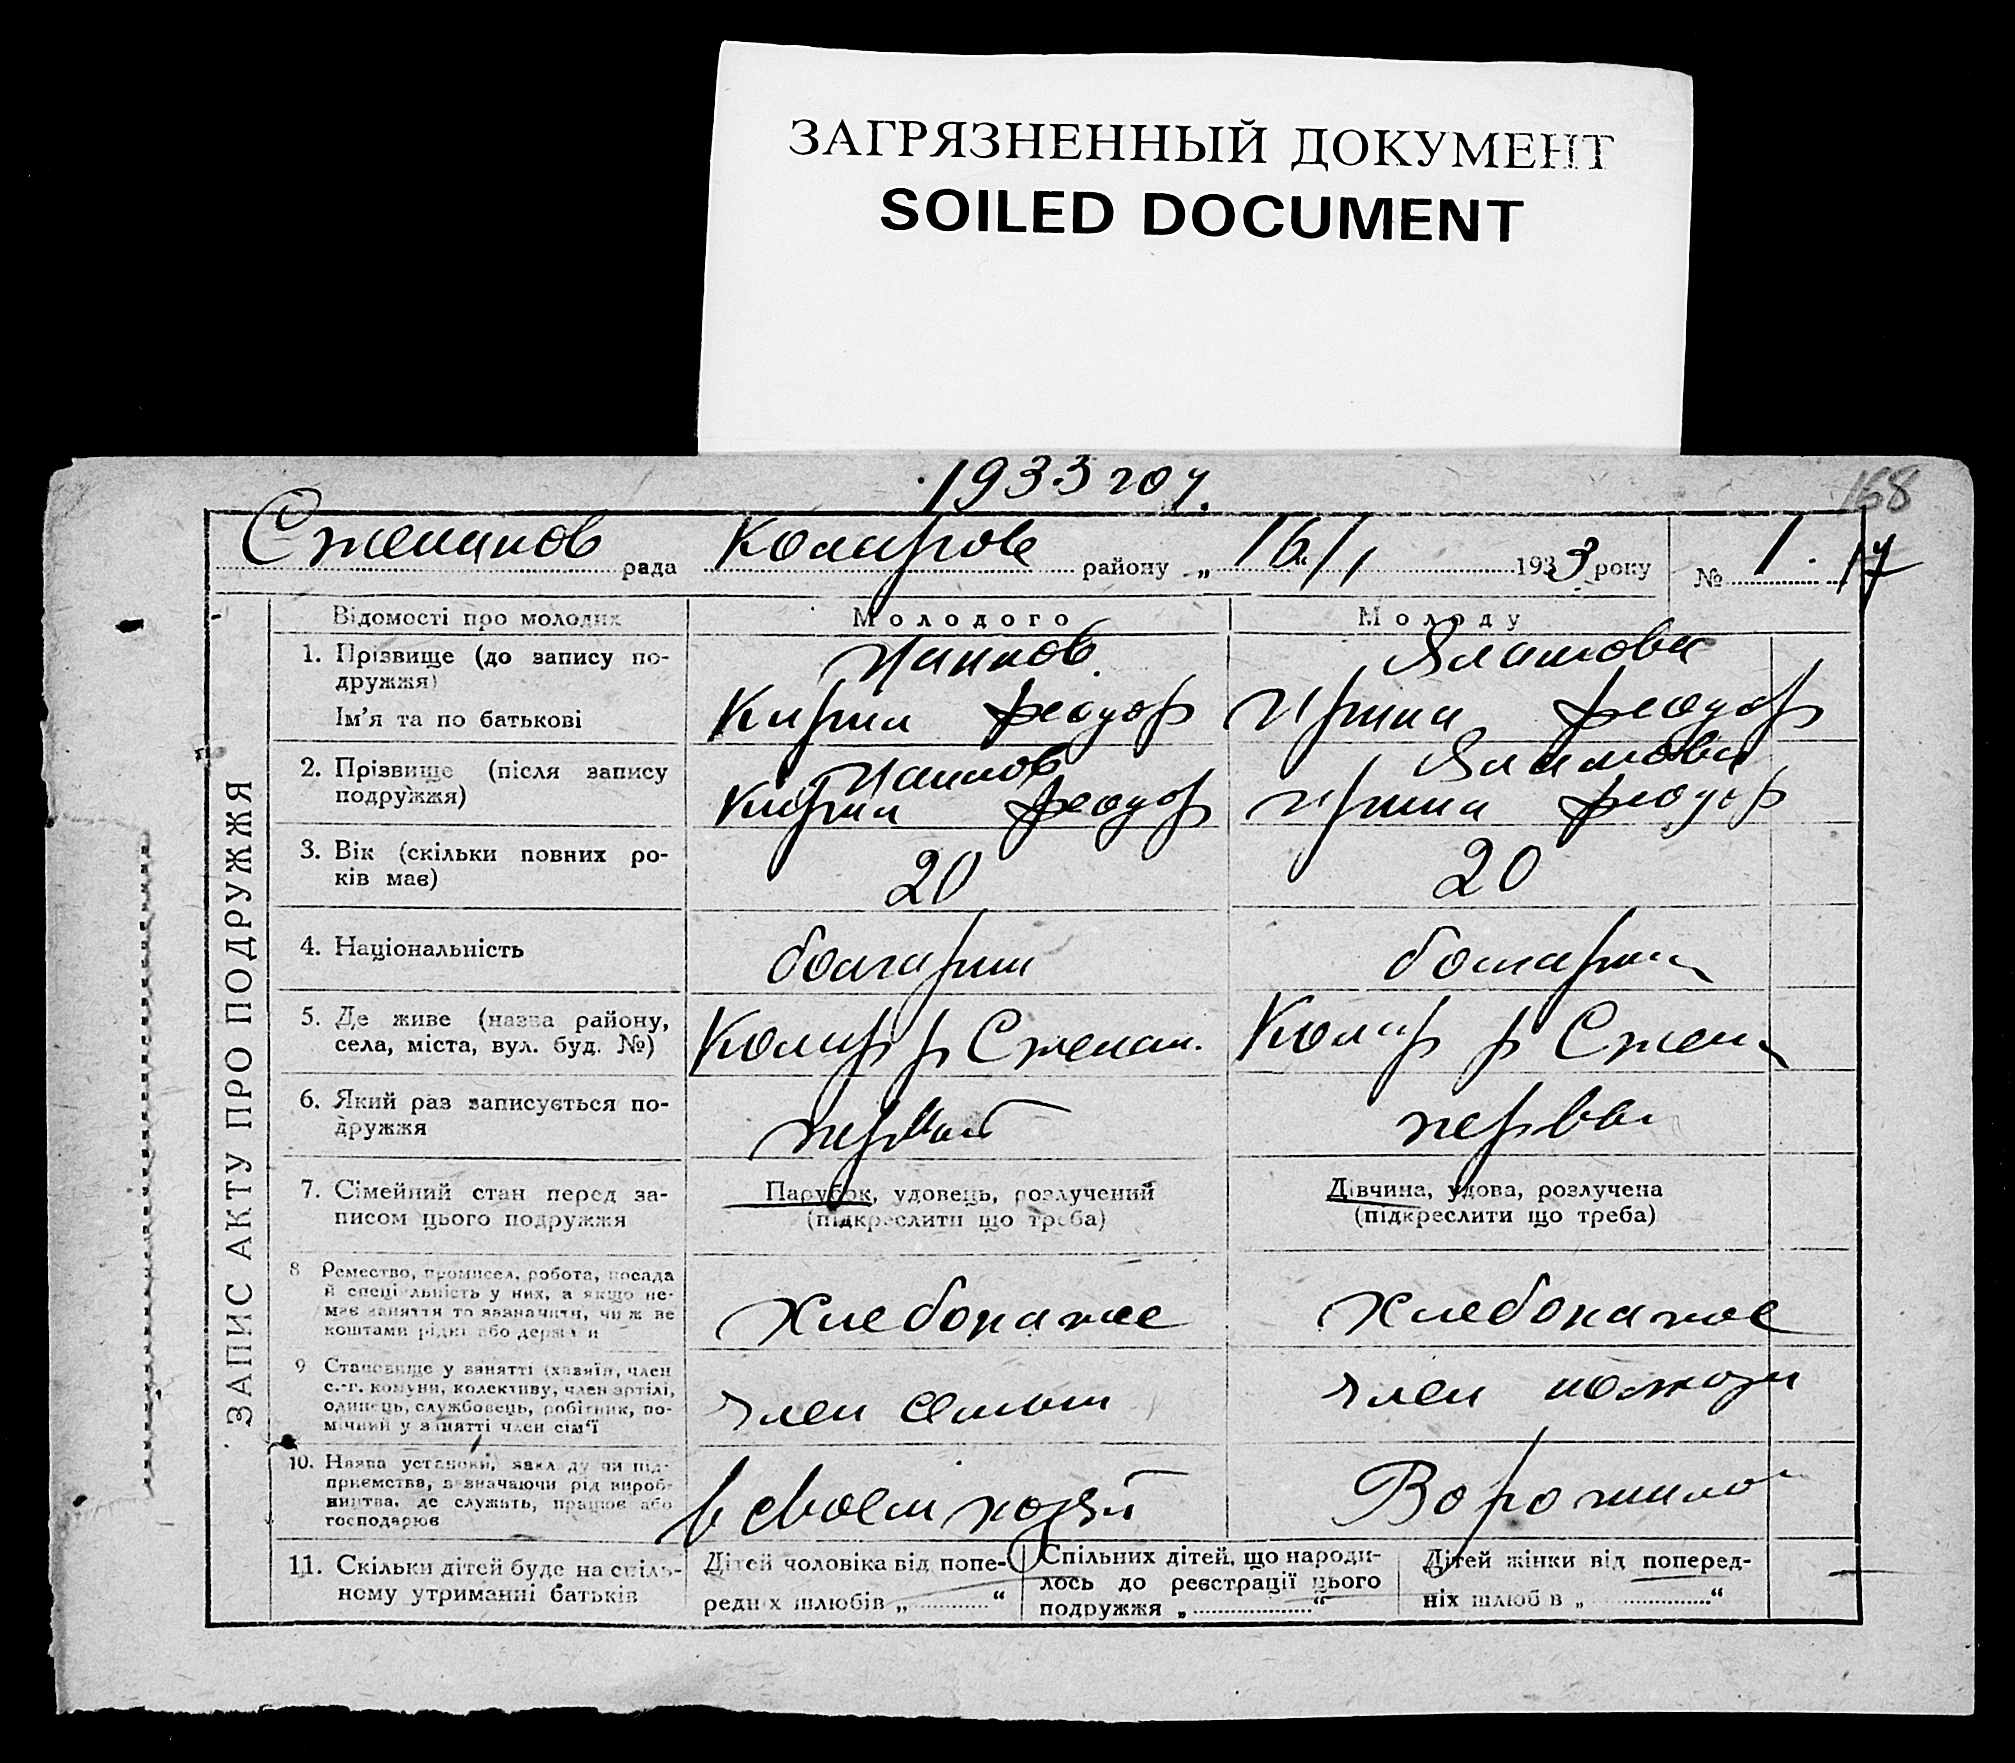 ЗАГРЯЗНЕННЫЙ ДОКУМЕНТ
SOILED DOCUMENT
1933 год.
168
Степанов рада Коларов району „ 16/I 1933 року № 1. 17
ЗАПИС АКТУ ПРО ПОДРУЖЖЯ
Відомості про молодих Молодого Молоду
1. Прізвище (до запису по-
дружжя)
Ім'я та по батькові
Кирил Феодор
Ирина Феодор
2. Прізвище (після запису
подружжя)
Кирил Феодор
Ирина Феодор
3. Вік (скільки повних ро-
ків має)
20
20
4. Національність
болгарин
болгарин
5. Де живе (назва району,
села, міста, вул. буд. №)
Колар р Степан.
Колар р Степ
6. Який раз записується по-
дружжя
первый
первы
7. Сімейний стан перед за-
писом цього подружжя
Парубок, удовець, розлучений
(підкреслити що треба)
Дівчина, удова, розлучена
(підкреслити що треба)
8 Ремество, промисел, робота, посада
й спеціальність у них, а якщо не-
має заняття то зазначити, чи ж ве
коштами рідні або держави
Хлебопашие
Хлебопашие
9 Становище у занятті (хазяїн, член
с.-г. комуни, колективу, член артілі,
одинець, службовець, робітник, по-
мічний у занятті член сім'ї
член семьи
член колхози
10. Назва установи, закладу чи під-
приємства, зазначаючи рід вироб-
ництва, де служить, працює або
господарює
в своем хозяй
Ворошило
11. Скільки дітей буде на спіль-
ному утриманні батьків
Дітей чоловіка від попе-
редніх шлюбів „ “
Спільних дітей, що народи-
лось до реєстрації цього
подружжя „ “
Дітей жінки від поперед-
ніх шлюбів „ “